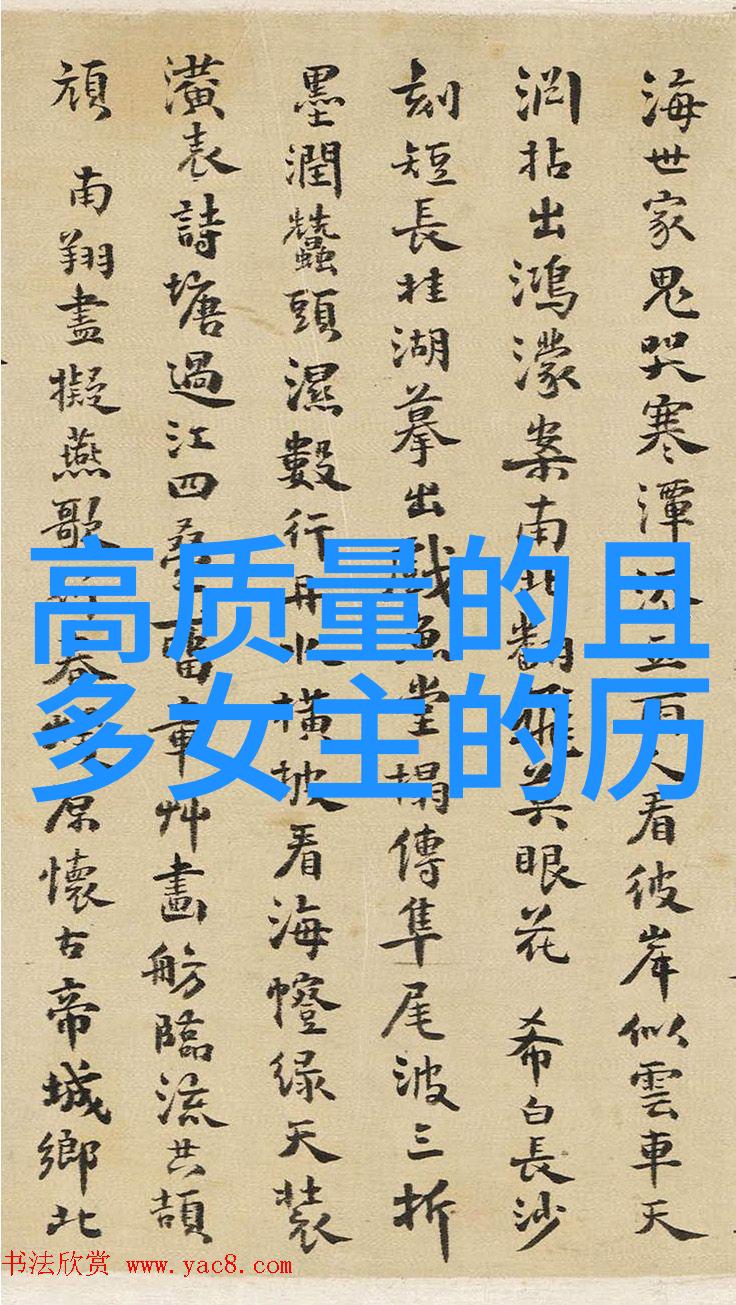 海世家鬼哭寒潭人看彼岸似雲車天
拈出鴻濛案南北翻飛共眼花 希白長沙
刻短長桂湖摹出戲魚堂榻傳隼尾波三折
墨潤蠶頭濕數行再北橫披看海幢绿天裝
潢表詩塘過江四章艸畫舫臨流共頡
頏 南翔盡擬燕歌行春原懷古帝城鄉北
高质量的且
多女主的历
书法欣赏 www.yac8.com